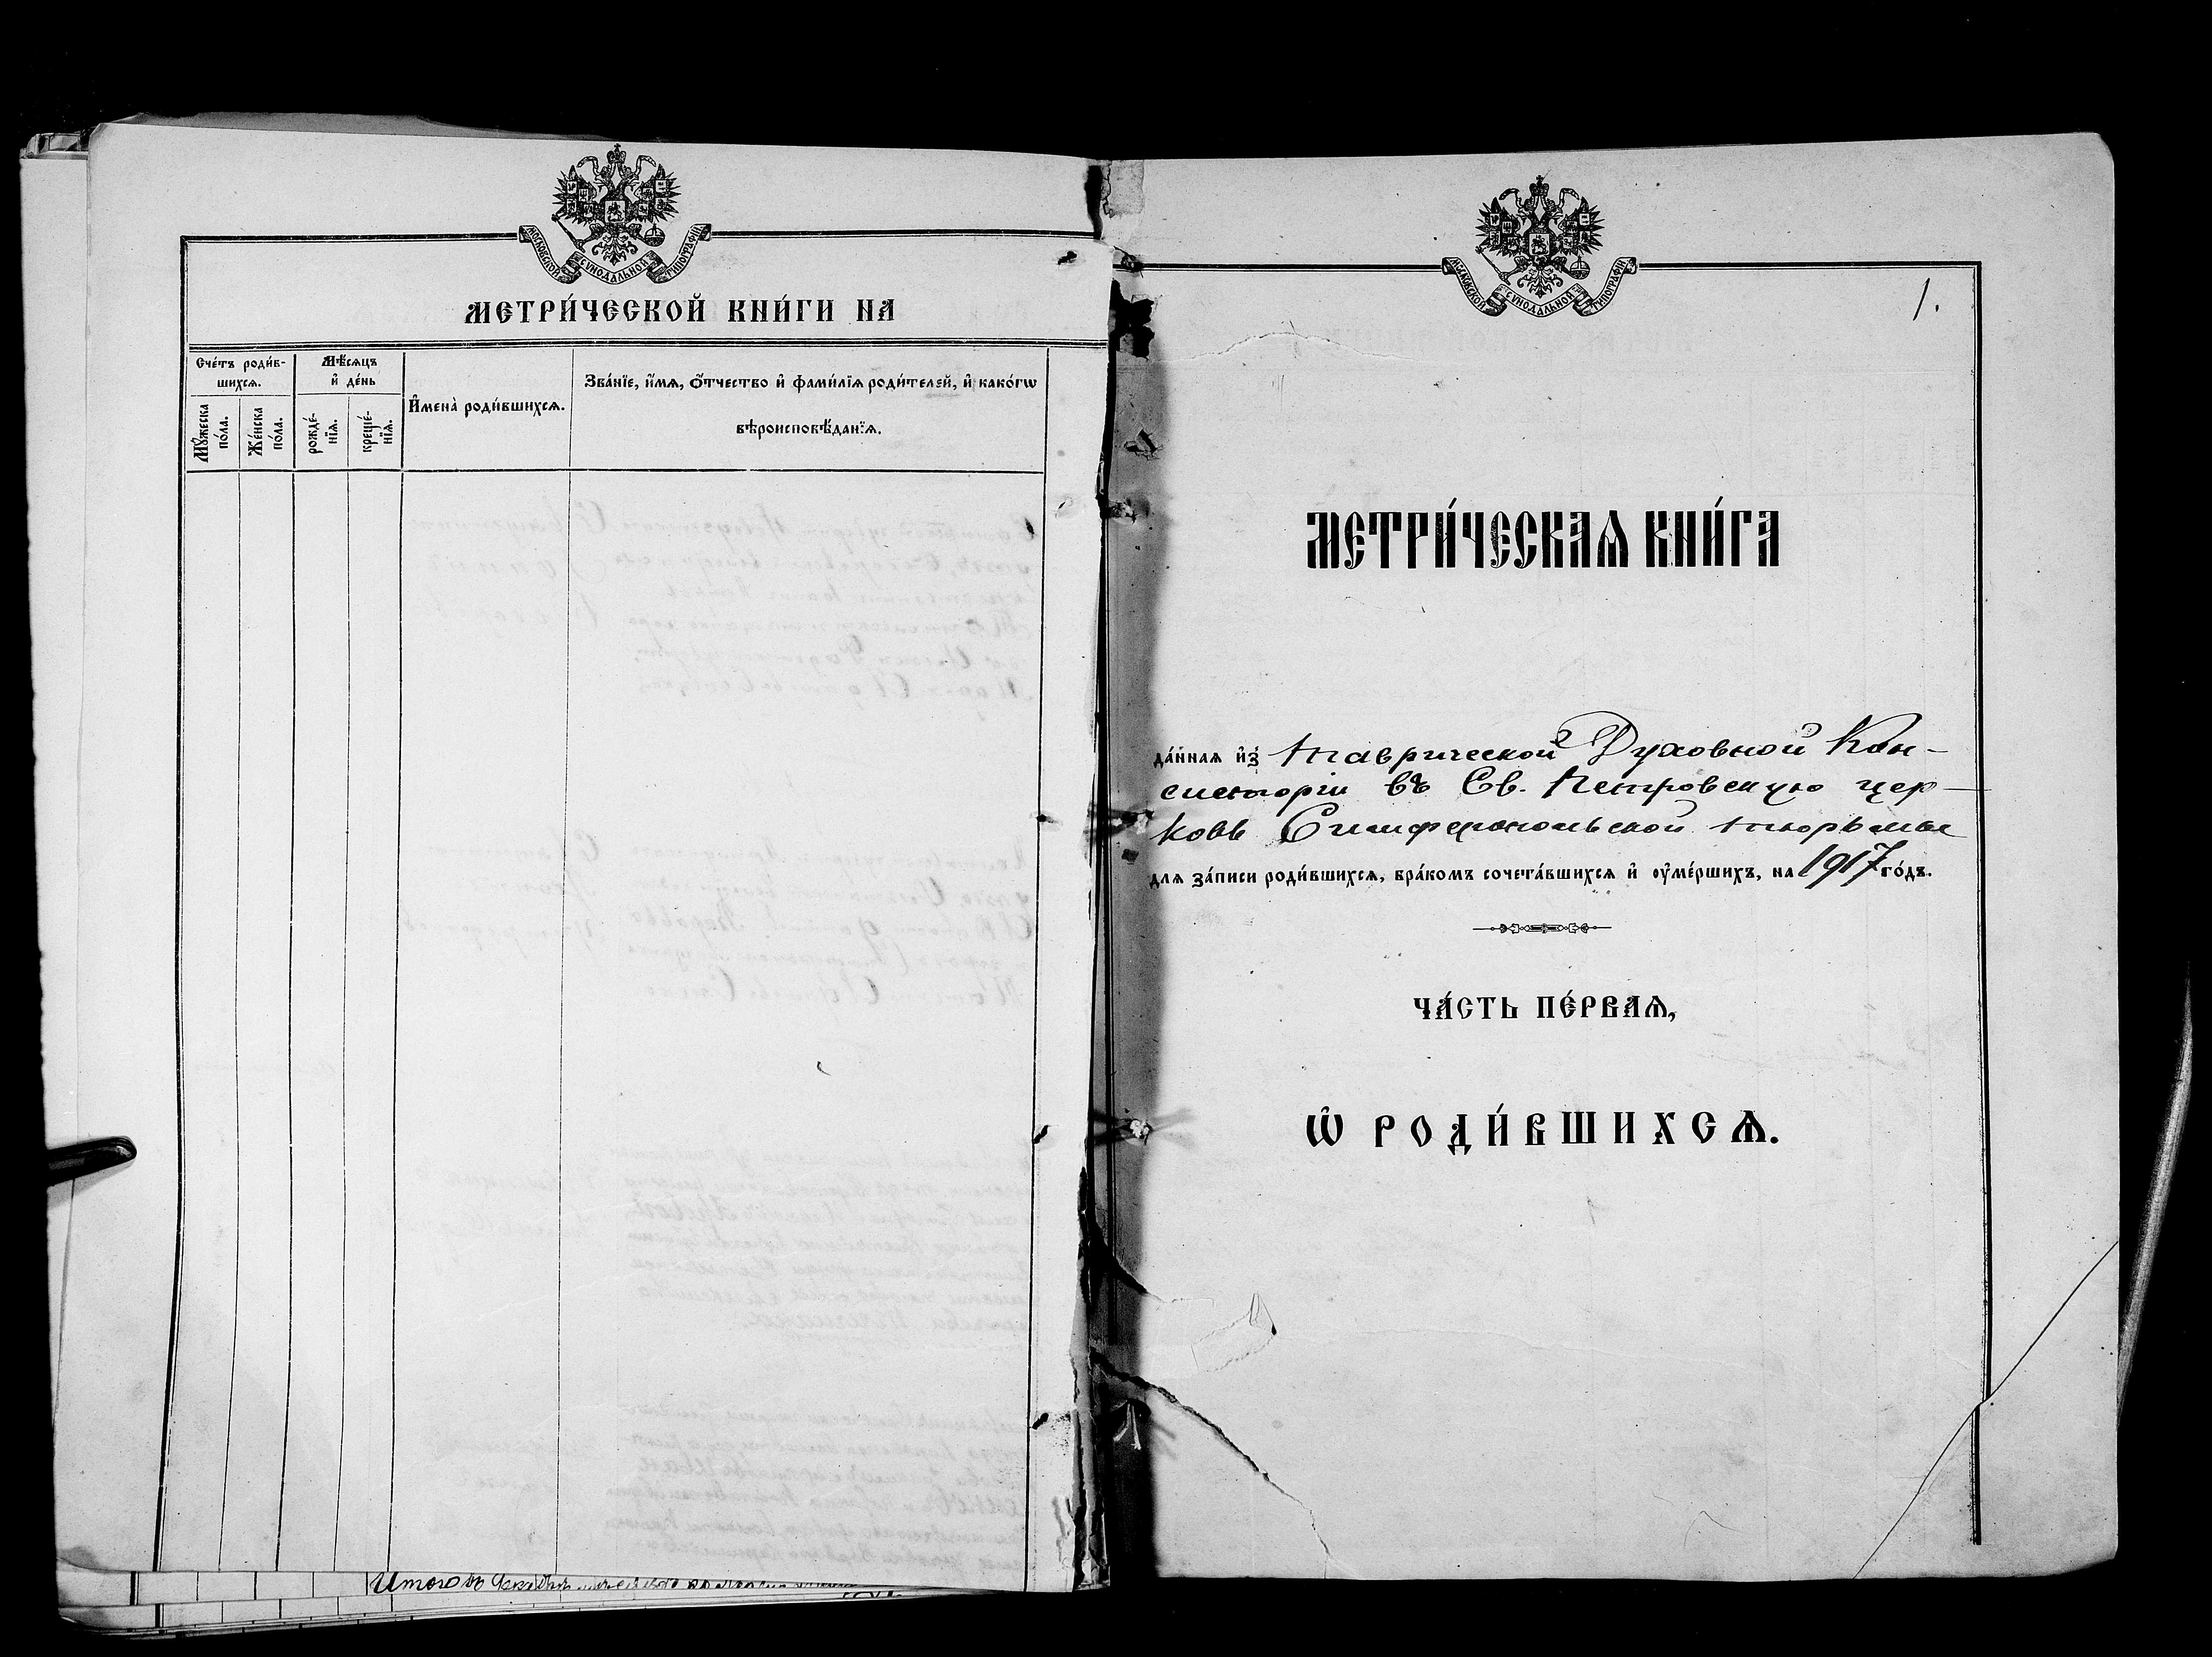 МОСКОВСКОЙ СѴНОДАЛЬНОЙ ТИПОГРАФІИ
МЕТРИ́ЧЕСКОЙ КНИ́ГИ НА
Сче́тъ роди́в-
шихсѧ.
Мѣ́сѧцъ
и҆ де́нь
Мꙋ́жеска
по́ла.
Же́нска
по́ла.
рожде́-
нїѧ.
креще́-
нїѧ.
И҆мена̀ роди́вшихсѧ.
Зва́нїе, и҆́мѧ, ѻ҆́тчество и҆ фами́лїѧ роди́телей, и҆ како́гѡ
вѣроисповѣ́данїѧ.
Итого въ
МОСКОВСКОЙ СѴНОДАЛЬНОЙ ТИПОГРАФІИ
1.
МЕТРИ́ЧЕСКАѦ КНИ́ГА
да́ннаѧ и҆з̾ Таврической Духовной Кон-
систоріи въ Св. Петровскую цер-
ковь Симферопольской тюрьмы
длѧ за́писи роди́вшихсѧ, бра́комъ сочета́вшихсѧ и҆ ᲂу҆ме́ршихъ, на 1917 го́дъ.
ЧА́СТЬ ПЕ́РВАѦ,
Ѡ҆ РОДИ́ВШИХСѦ.